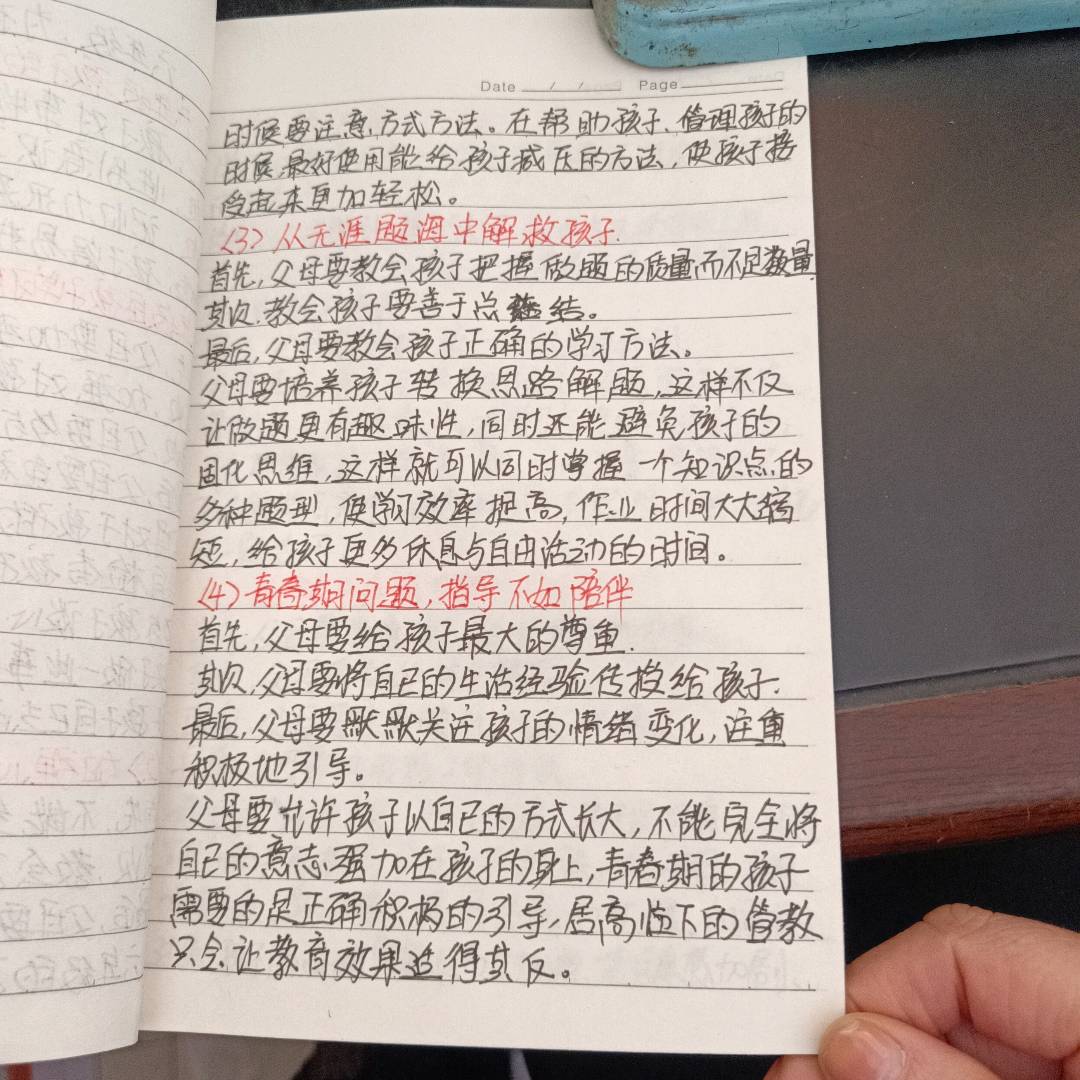 Date / / Page
时候要注意方式方法。在帮助孩子、管理孩子的
时候,最好使用能给孩子减压的方法,使孩子接
受起来更加轻松。
(3) 从无涯题海中解救孩子.
首先,父母要教会孩子把握做题的质量而不是数量.
其次.教会孩子要善于总结。
最后,父母要教会孩子正确的学习方法。
父母要培养孩子转换思路解题,这样不仅
让做题更有趣味性,同时还能避免孩子的
固化思维,这样就可以同时掌握一个知识点的
多种题型,使学习效率提高,作业时间大大缩
短,给孩子更多休息与自由活动的时间。
(4) 青春期问题,指导不如陪伴
首先,父母要给孩子最大的尊重.
其次,父母要将自己的生活经验传授给孩子.
最后,父母要默默关注孩子的情绪变化,注重
积极地引导。
父母要允许孩子以自己的方式长大,不能完全将
自己的意志强加在孩子的身上,青春期的孩子
需要的是正确积极的引导,居高临下的管教
只会让教育效果适得其反。